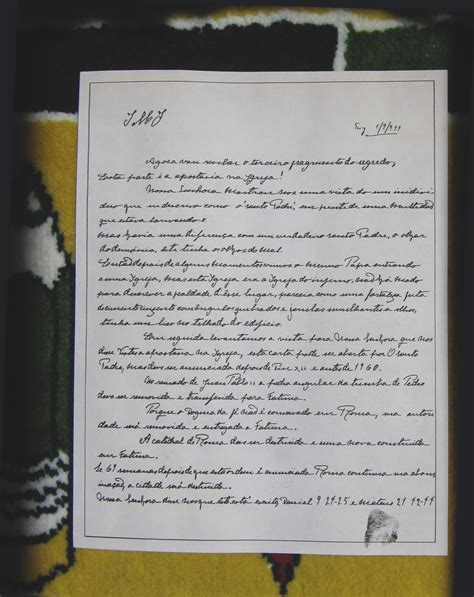 JMJ
Tuy 1/9/1944
Agora vou revelar o terceiro fragmento do segredo;
Esta parte é a apostasia na Igreja!
Nossa Senhora mostrou-nos uma vista do um individuo que
eu descrevo como o 'santo Padre', em frente de uma multidão
que estava louvando-o.
Mas havia uma diferença com um verdadeiro santo Padre, o olhar
do demonio, este tinha os olhos do mal.
Então depois de alguns momentos vimos o mesmo Papa entrando
a uma Igreja, mas esta Igreja era a Igreja do inferno, não há modo
para descrever a fealdade d'esse lugar, parecia como uma fortaleza feita
de cimento cinzento com ângulos quebrados e janelas semelhantes a olhos,
tinha um bico no telhado do edificio.
Em seguida levantamos a vista para Nossa Senhora que nos
disse Vistes a apostasia na Igreja, esta carta pode ser aberta por O santo
Padre, mas deve ser anunciada depois de Pio XII e antes de 1960.
No reinado de Juan Pablo II a pedra angular da tumba de Pedro
deve ser removida e transferida para Fatima.
Porque o dogma da fé não é conservado em Roma, sua autori
dade será removida e entregada a Fatima.
A catedral de Roma deve ser destruida e uma nova construida
em Fatima.
Se 69 semanas depois de que esta ordem é anunciada Roma continua sua abomi
nação, a cidade será destruida.
Nossa Senhora disse-nos que isto está escrito, Daniel 9 24-25 e Mateus 21 42-44